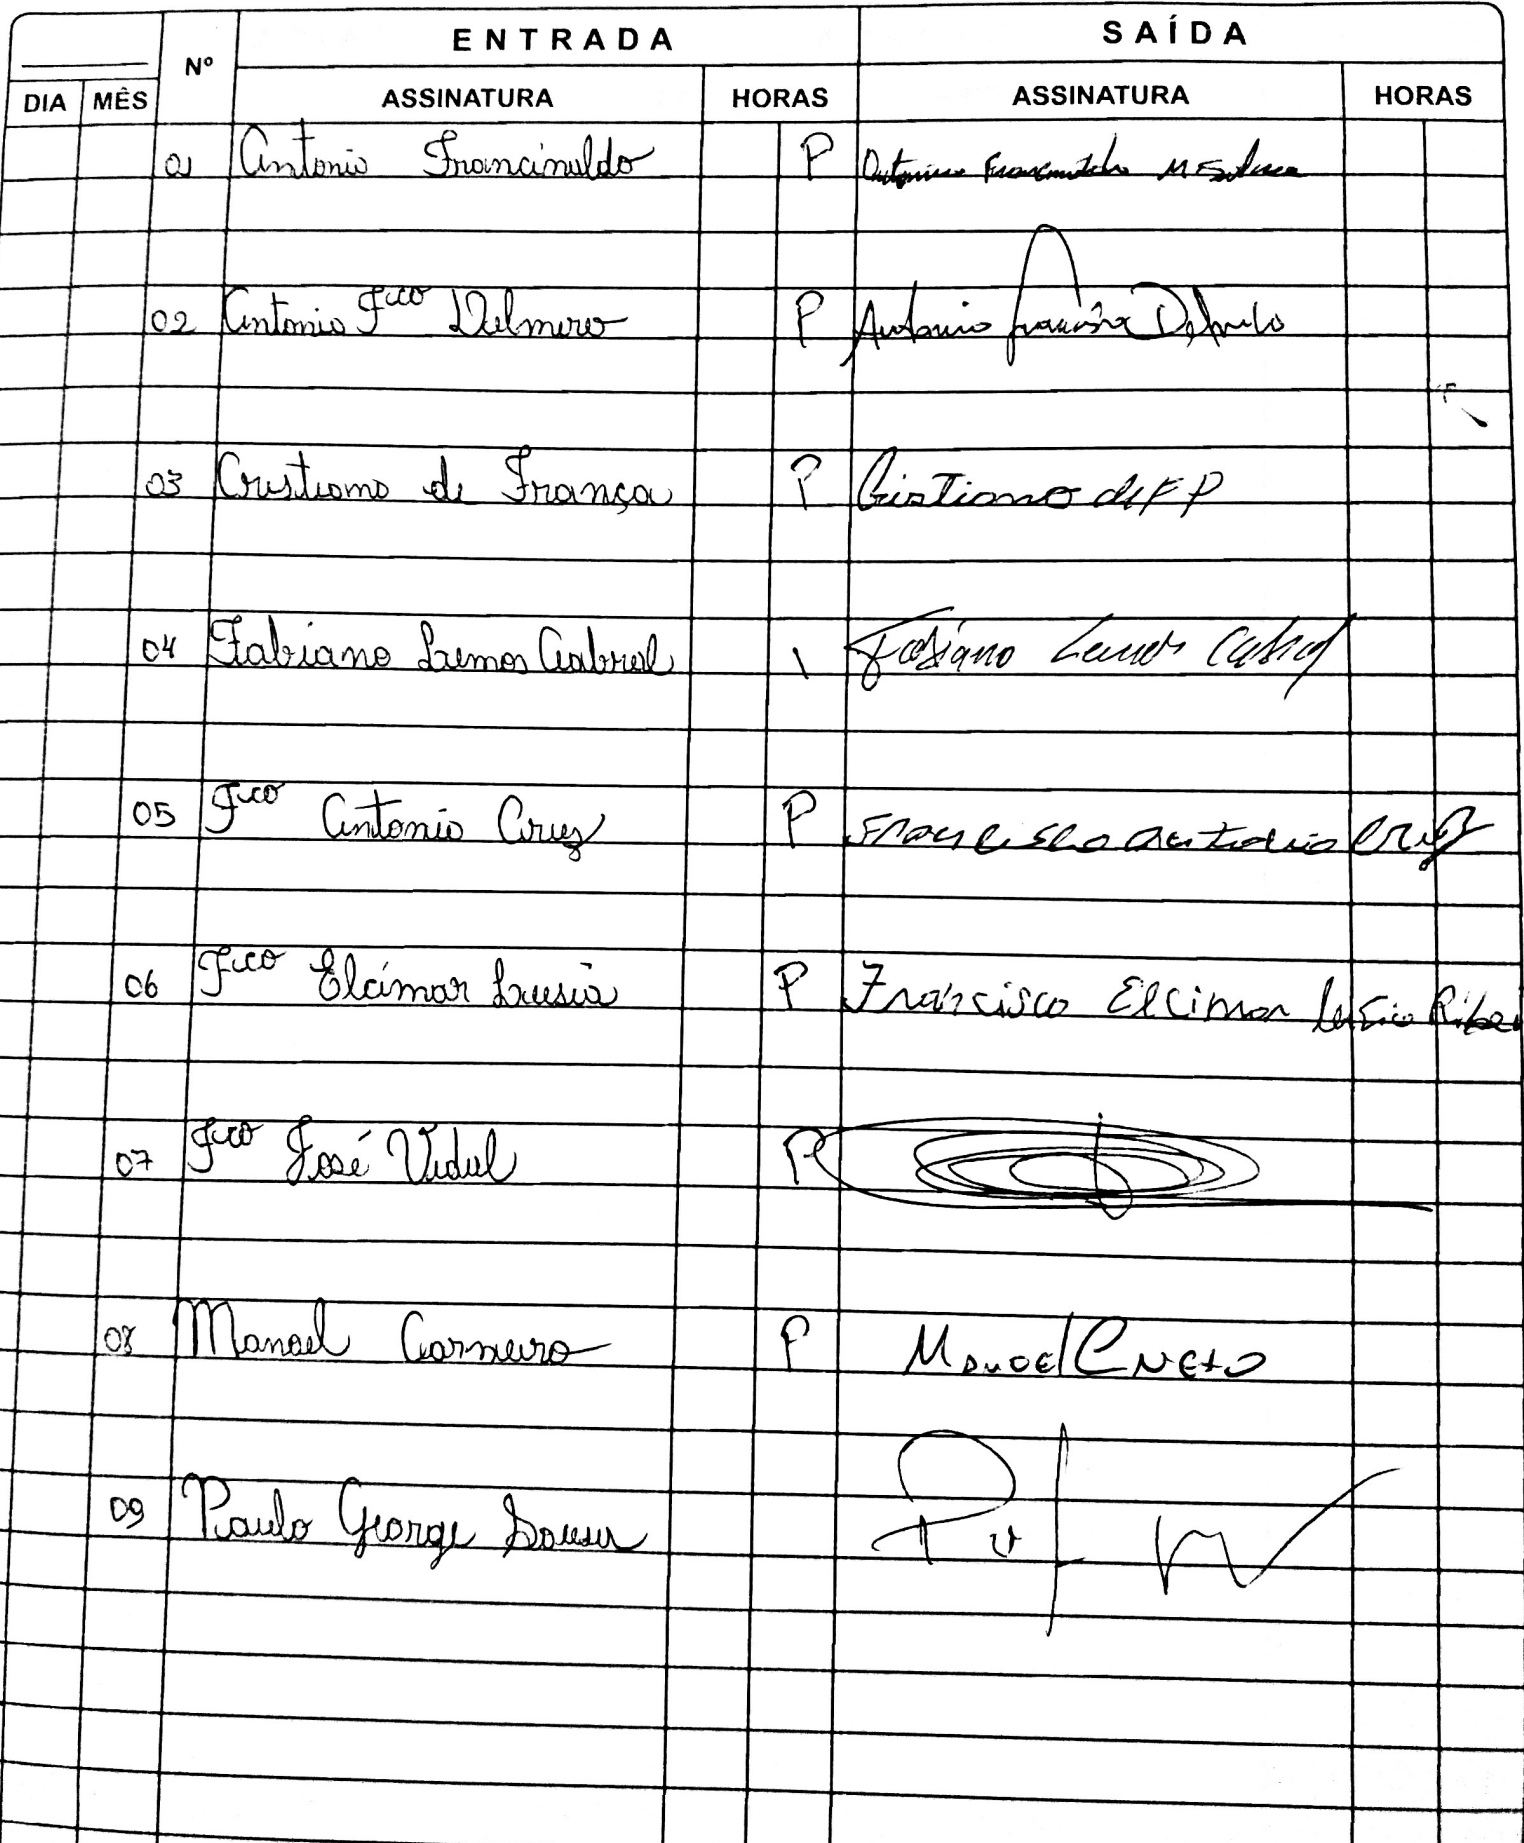 ENTRADA SAÍDA
Nº
DIA MÊS ASSINATURA HORAS ASSINATURA HORAS
01 Antonio Francinaldo P Antonio Francinaldo M
02 Antonio Fco Delmiro P Antonio Delmiro
03 Cristiano de França P Cristiano de F P
04 Fabiano Lemos Cabral \ Fabiano Lemos Cabral
05 Fco Antonio Cruz P Francisco Antonio Cruz
06 Fco Elcimar Lusia P Francisco Elcimar Lusio Ribei
07 Fco José Vidal P
08 Manoel Carneiro P Manoel C Neto
09 Paulo George Sousa